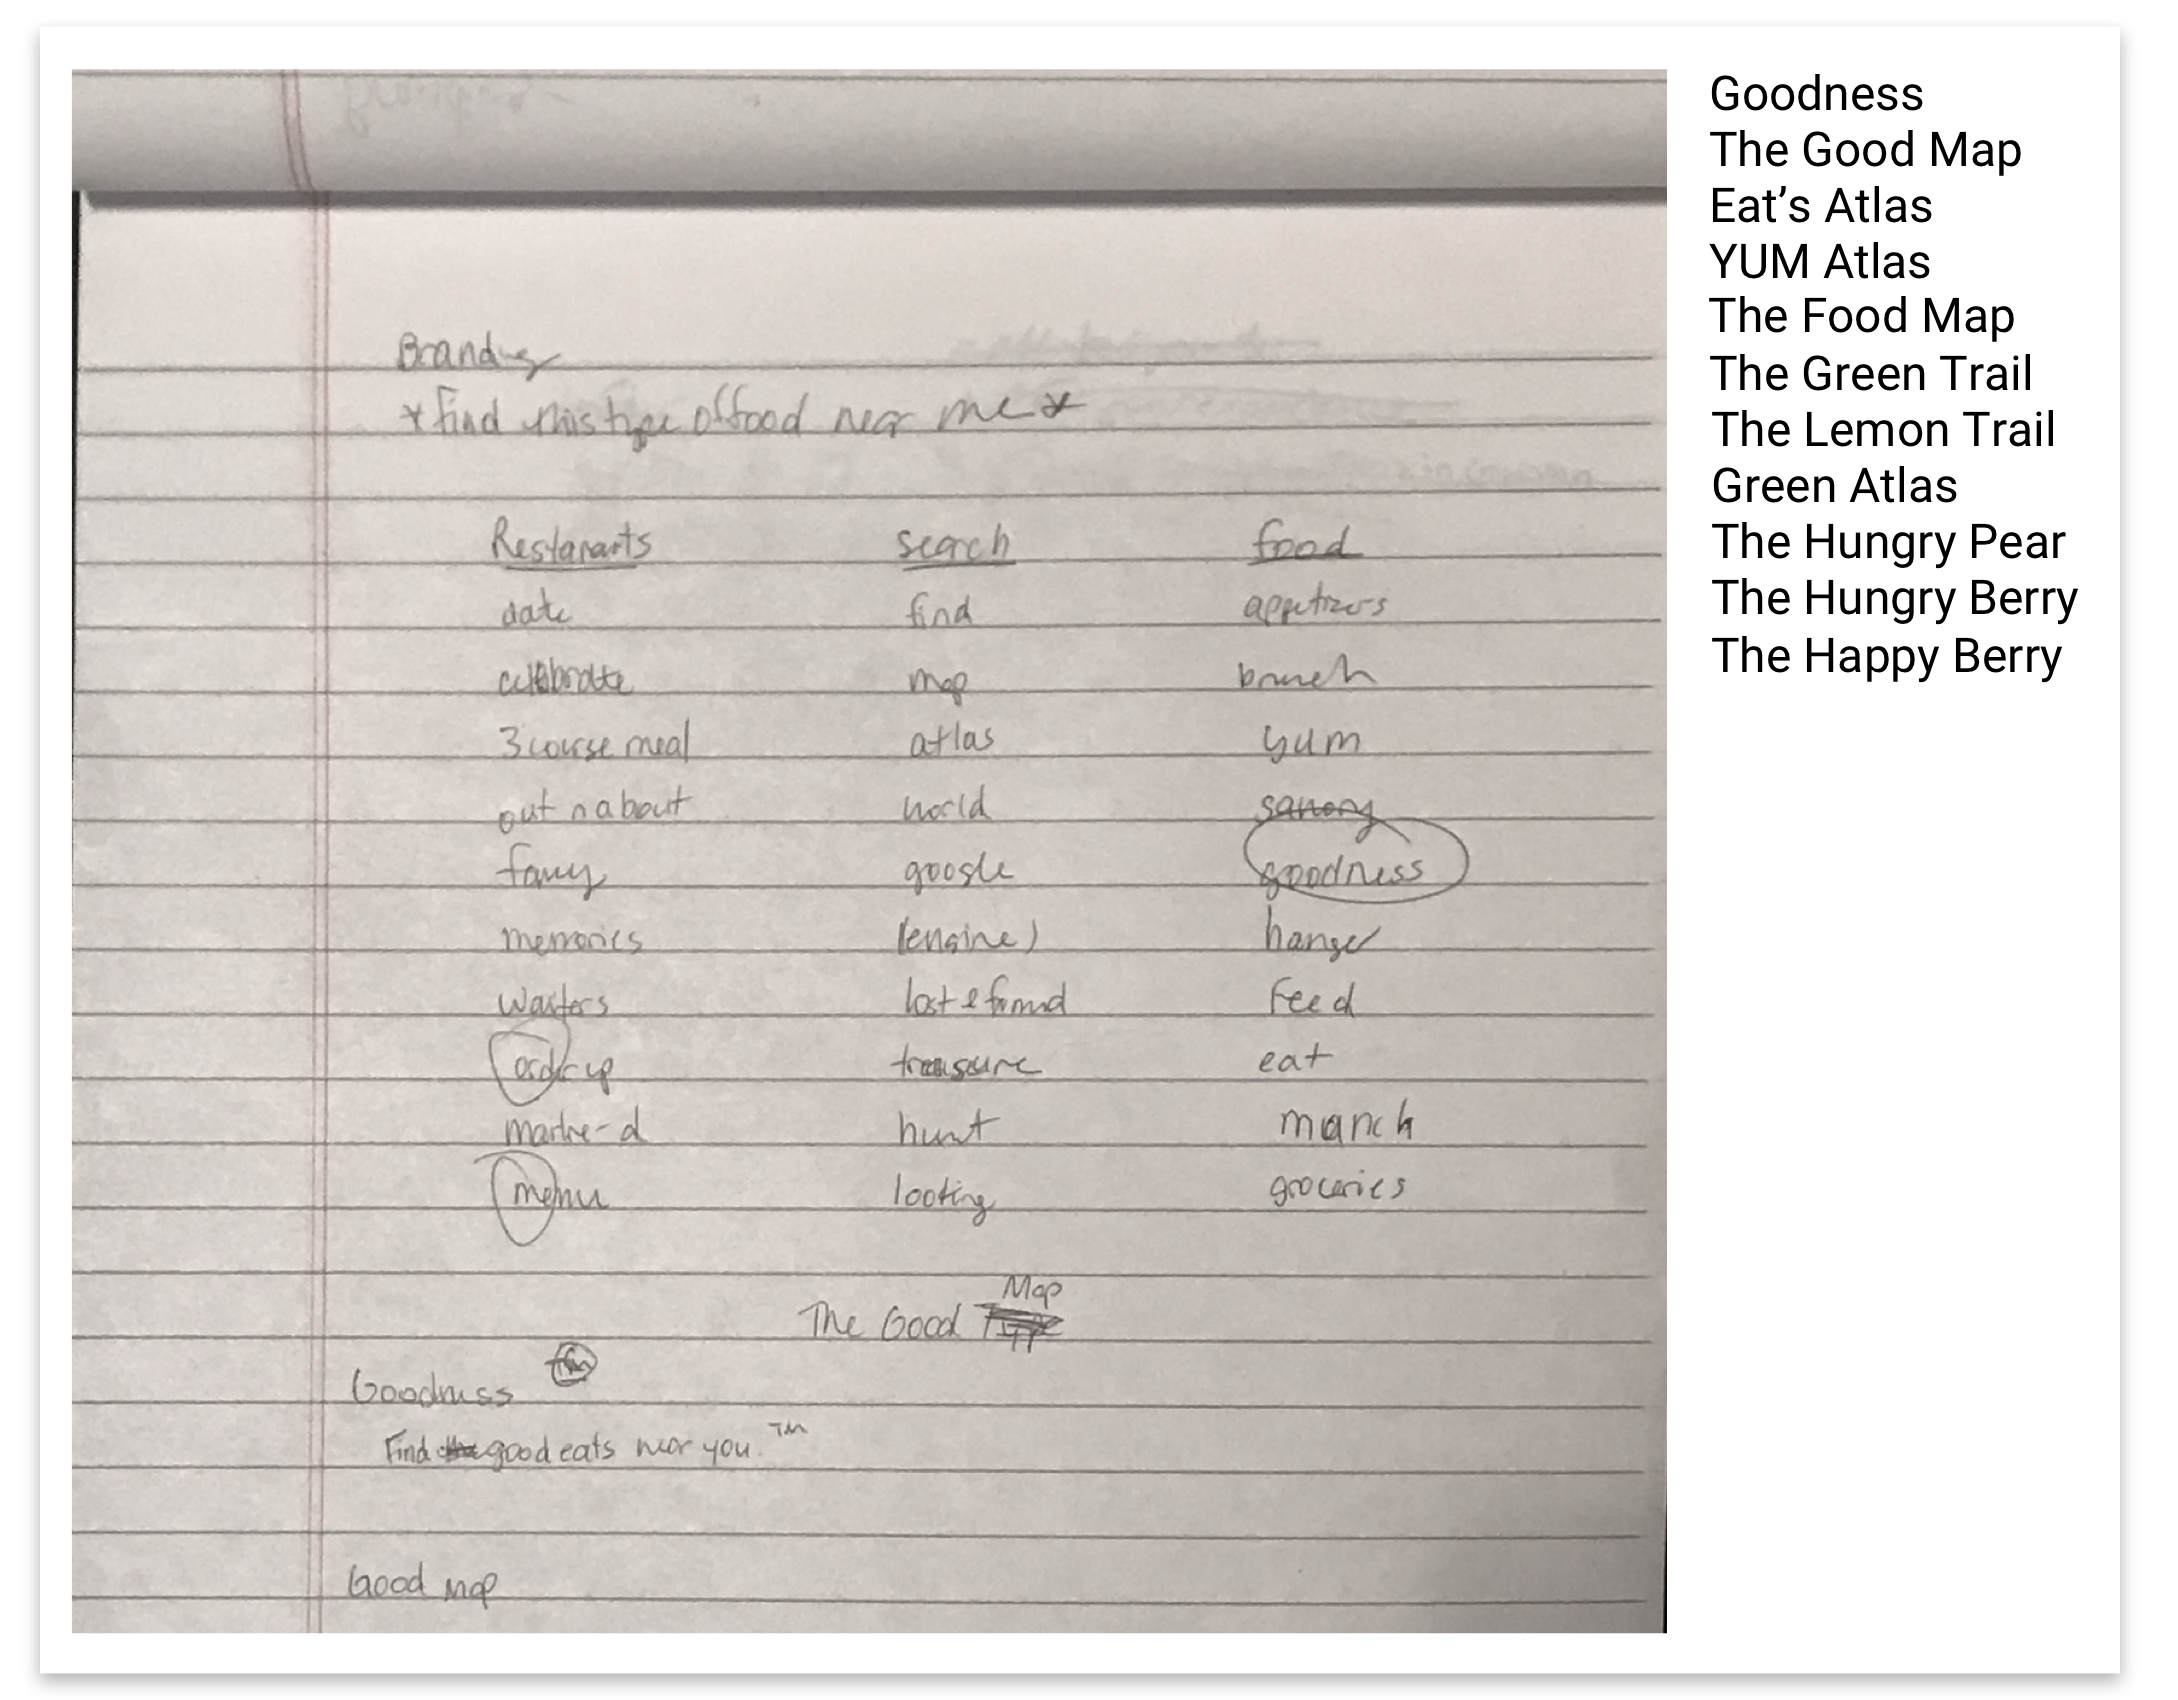 Branding
*find this type of food near me*
Restarants search food
date find appetizers
celebrate map brunch
3 course meal atlas yum
out n about world savory
fancy google goodness
memories (engine) hanger
waiters lost & found feed
order up treasure eat
maitre-d hunt munch
menu looting groceries
Map
The Good Type
Goodness
Find good eats near you. TM
Good Map
Goodness
The Good Map
Eat’s Atlas
YUM Atlas
The Food Map
The Green Trail
The Lemon Trail
Green Atlas
The Hungry Pear
The Hungry Berry
The Happy Berry